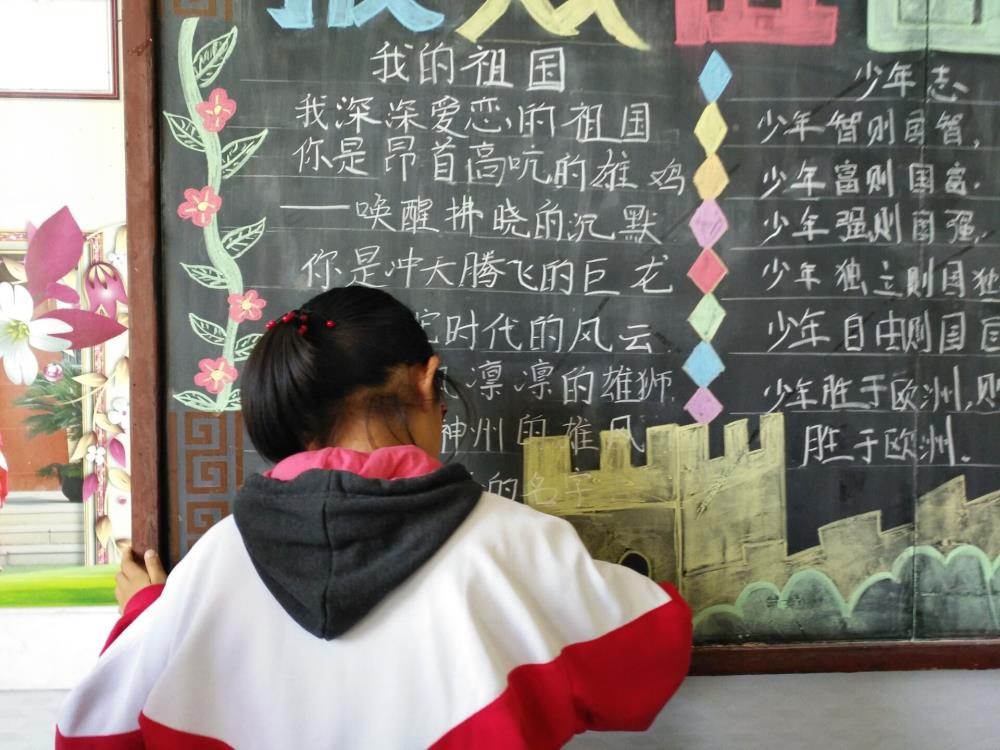 我的祖国
我深深爱恋的祖国
你是昂首高吭的雄鸡
——唤醒拂晓的沉默
你是冲天腾飞的巨龙
时代的风云
凛凛的雄狮
神州的雄风
的名字
少年志
少年智则国智,
少年富则国富.
少年强则国强
少年独立则国独
少年自由则国
少年胜于欧洲,则
胜于欧洲.